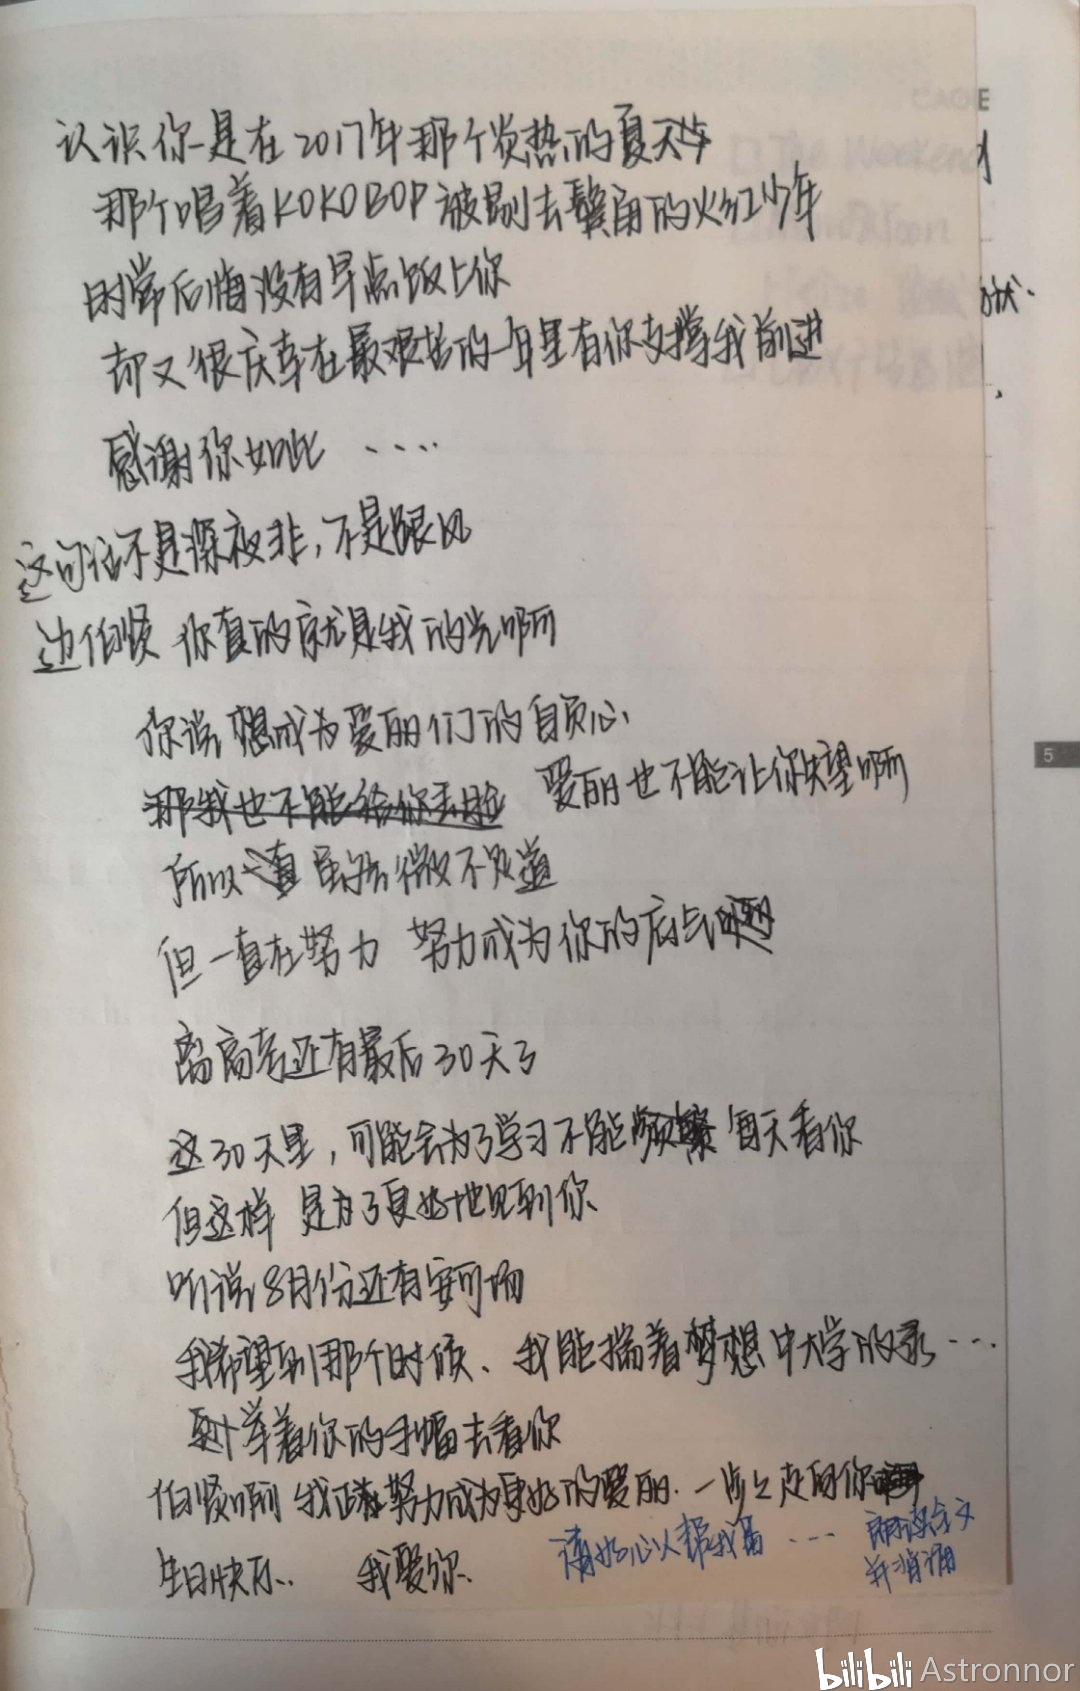 认识你是在2017年那个炎热的夏天
那个唱着KOKOBOP被剔去鬓角的火红少年
时常后悔没有早点饭上你
却又很庆幸在最艰苦的一年里有你支撑我前进
感谢你如此 ....
这句话不是深夜非,不是跟风
边伯贤 你真的就是我的光啊
你说 想成为爱丽们的自负心
那我也不能给你丢脸 爱丽也不能让你失望啊
所以一直 虽然微不足道
但一直在努力 努力成为你的底气
离高考还有最后30天了
这30天里,可能会为了学习不能频繁 每天看你
但这样 是为了更好地见到你
听说8月份还有安可场
我希望到那个时候、我能揣着梦想中大学的录...
举着你的手幅去看你
伯贤啊 我正在努力成为更好的爱丽.一步步走向你
生日快乐.. 我爱你.
请好心人帮我写 ... 朗读全文
并消酒
CAGE
The Weekend
5
bilibili Astronnor